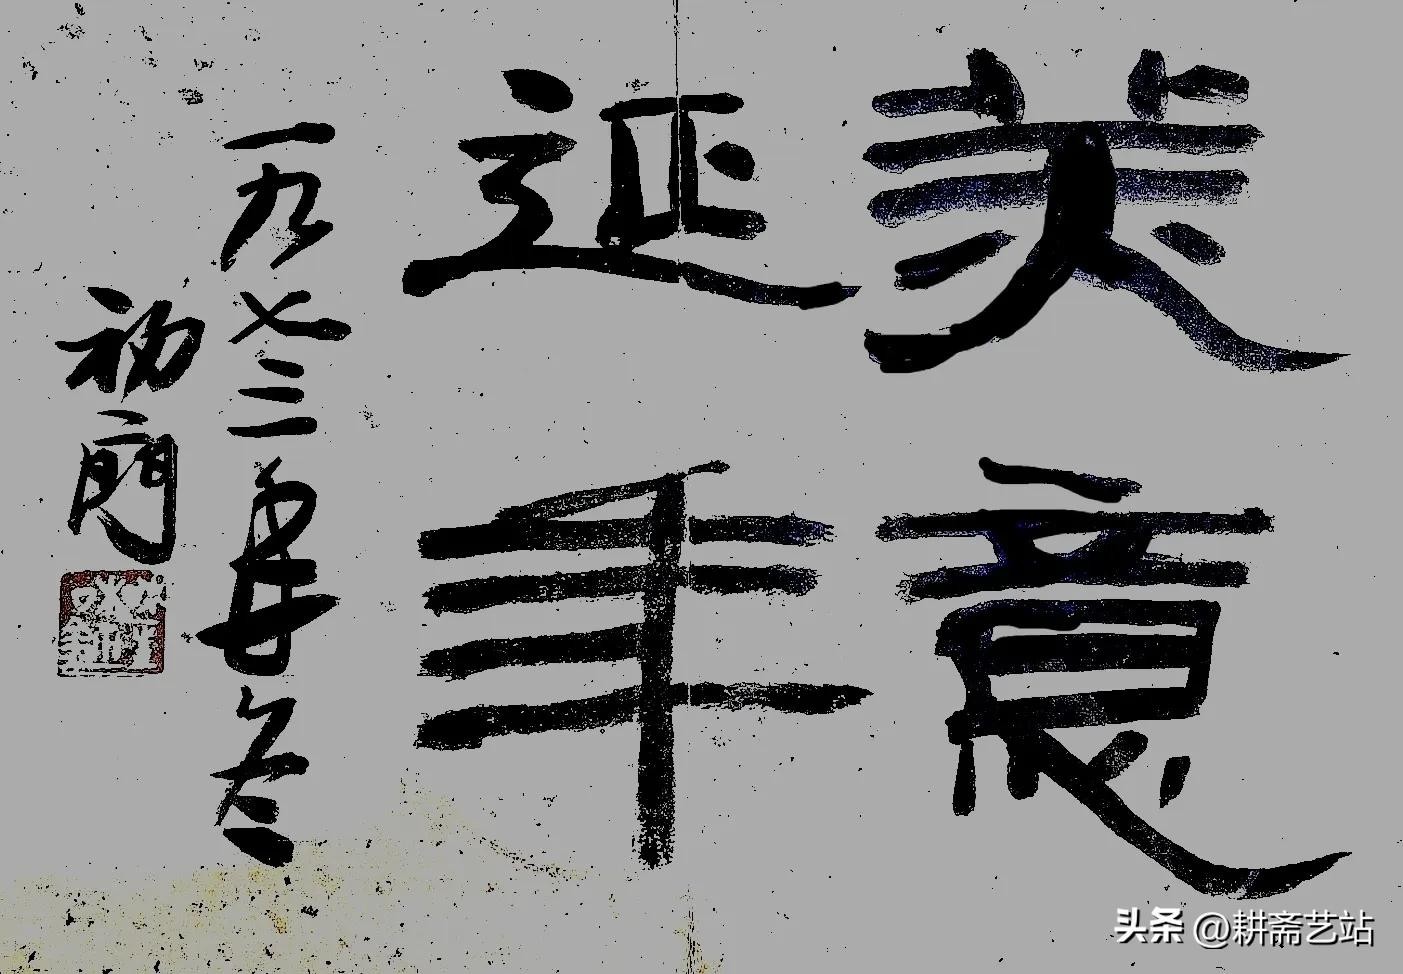 美意
延年
一九七三年冬
头条 @耕斋艺站